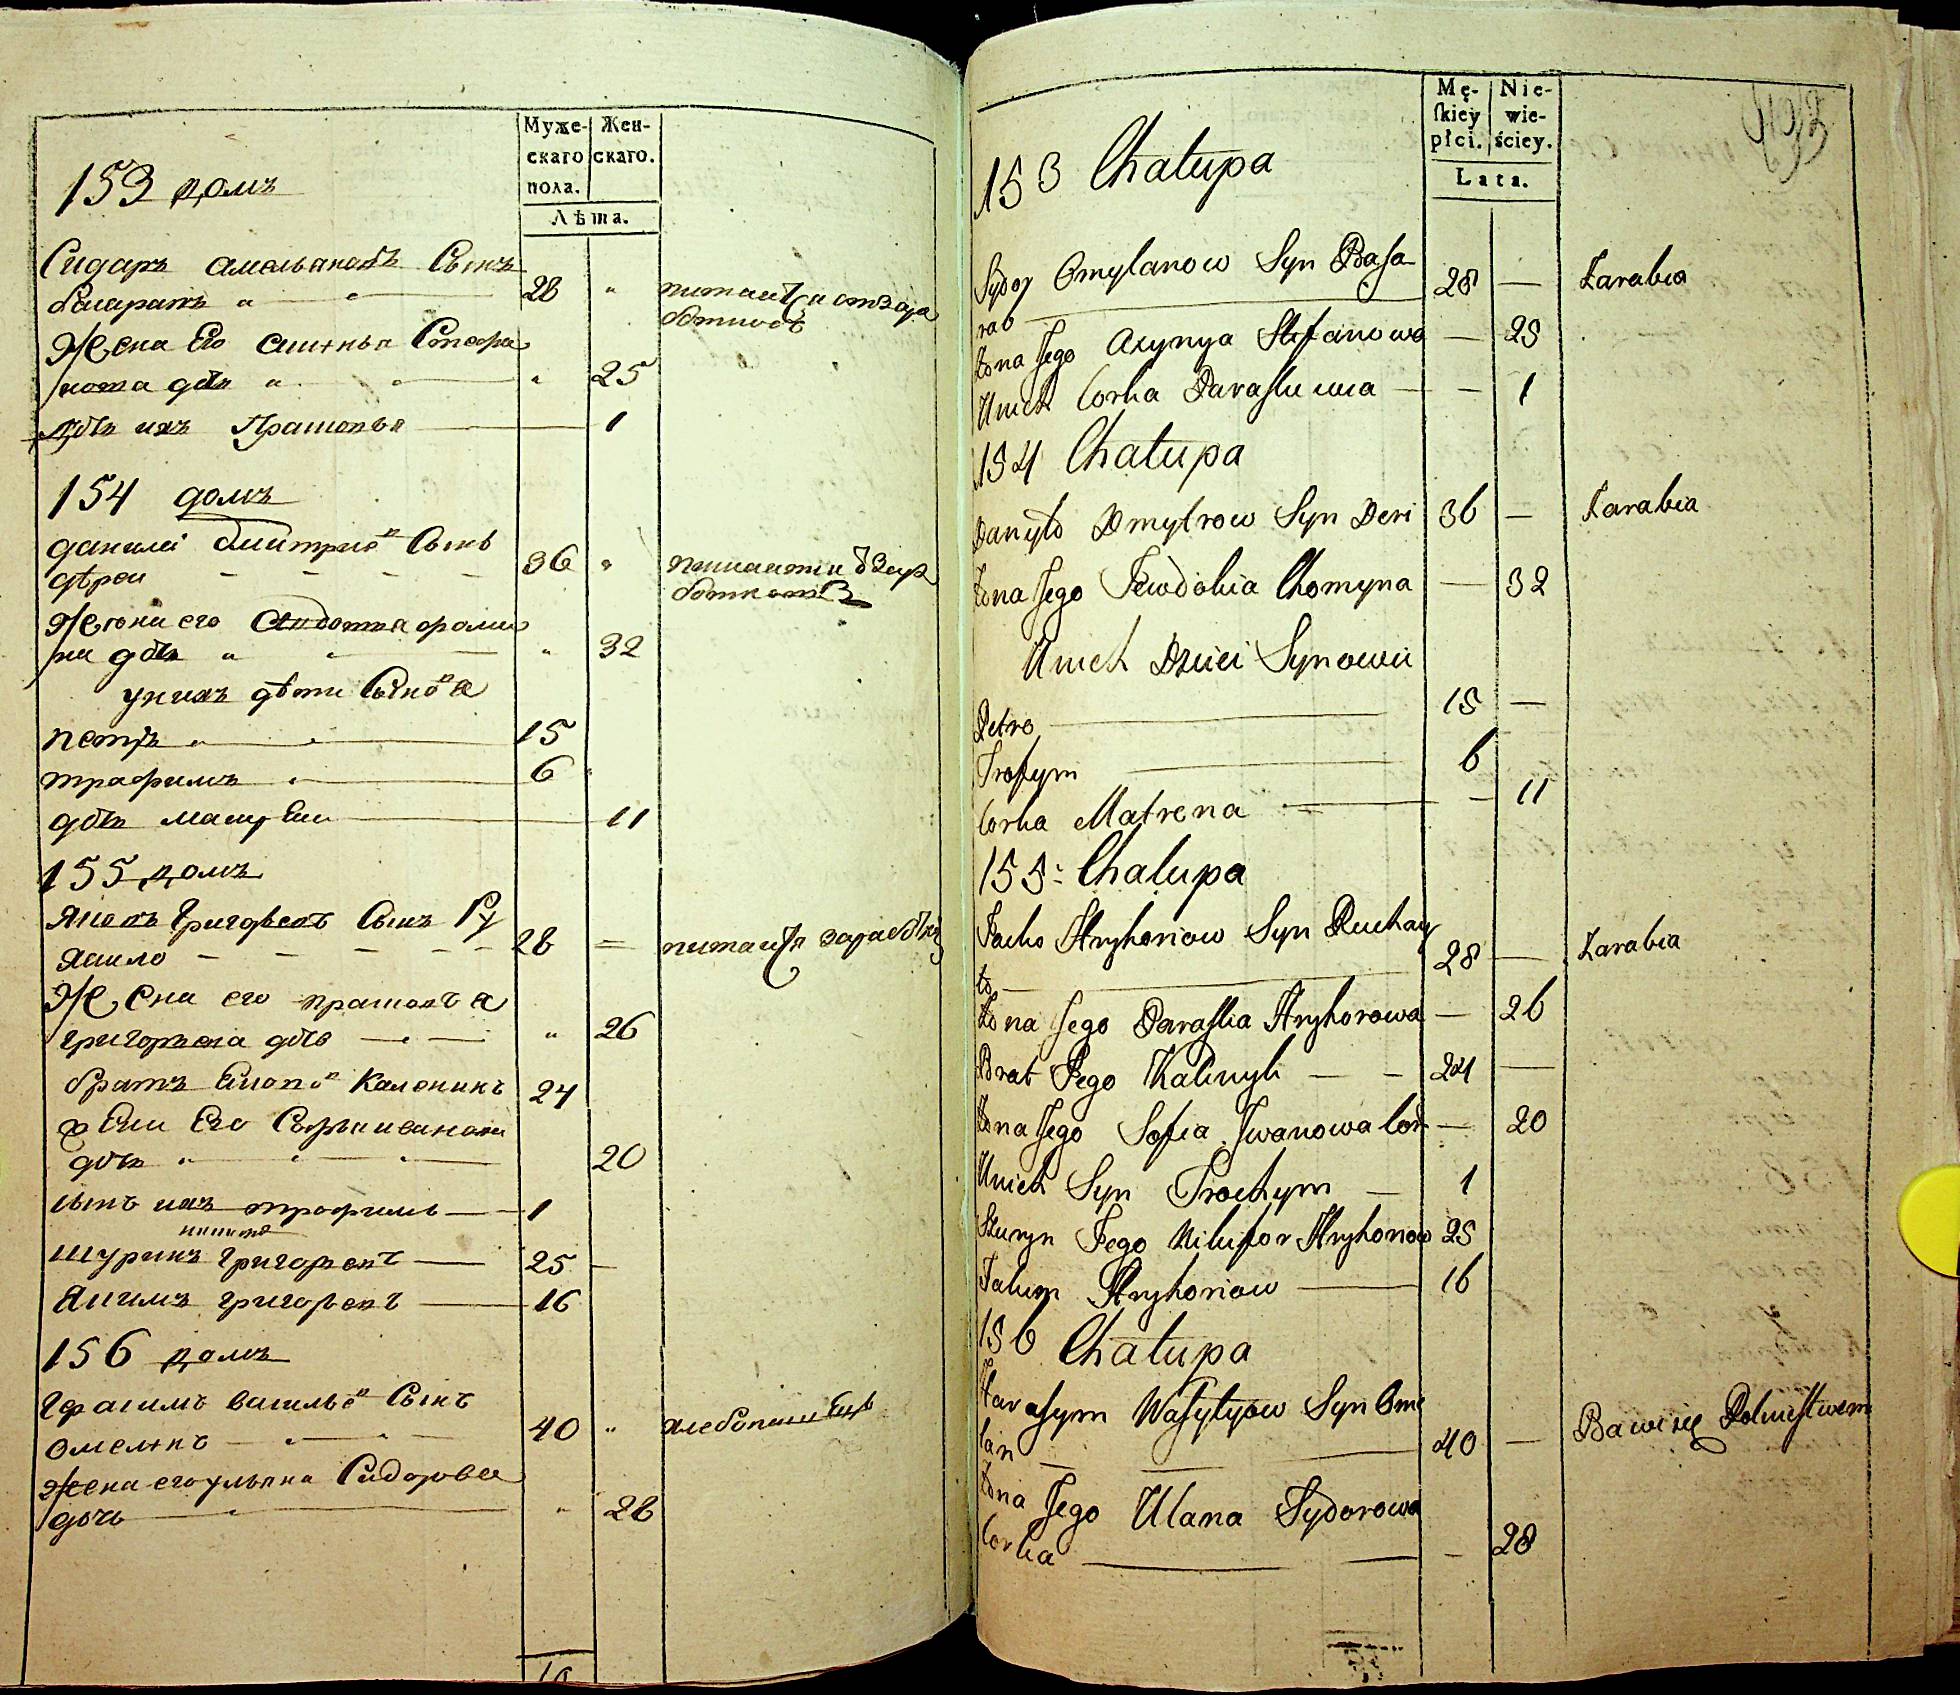 Муже-
скаго
пола.
Жен-
скаго.
Лѣта.
153 домъ
Сидаръ Амельяновъ Сынъ
Басарапъ 28
питаитца отзара
ботковъ
Жена Его Стефа
нова дочь 25
дочь ихъ Прасковья 1
154 домъ
данило дмитриѡ Сынъ
дѣреи 36
Жена его Авдотта фоми
на дочь 32
унихъ дѣти Сыноѡя
петръ 15
трафимъ 6
дочь 11
155 домъ
Яковъ Григорьевъ Сынъ Ру
28 питаитца
Жена его прасковья
григорьева дочь 26
братъ Каленикъ 24
Его Софья иванова
дочь 20
сынъ ихъ трофимъ 1
никита
шуринъ григорьевъ 25
Якимъ григорьевъ 16
156 домъ
Герасимъ васильѡ Сынъ
Омелянъ 40
Жена его ульяна Сидорова
дочь 28
Mę-
skiey
płci.
Nie-
wie-
ściey.
Lata.
153 Chatupa
Sydor Omylanow Syn Basa
rab 28 — Zarabia
Żona Jego Axynya Stefanowa — 25
Unich Corka Paraskiewia — — 1
154 Chatupa
Danyło Dmytrow Syn Deri 36 — Zarabia
Żona Jego Jewdokia Chomyna — 32
Unich Dzieci Synowie
Petro 15 —
Trofym 6
Corka Matrena — 11
155: Chalupa
Jacko Hryhoriow Syn Ruchay
ło 28 — Zarabia
Żona Jego Paraskia Hryhorowa — 26
Brat Jego Kalinyk — — 24 —
Żona Jego Sofia Jwanowa Cor — 20
Unich Syn Trochym — 1
Szuryn Jego Nikifor Hryhoriow 25
Jakim Hryhoriow 16
156 Chatupa
Harasym Wasylyow Syn Ome
lan 40 — Bawi się Rolnistwem
Żona Jego Ulana Sydorowa
Corka — 28